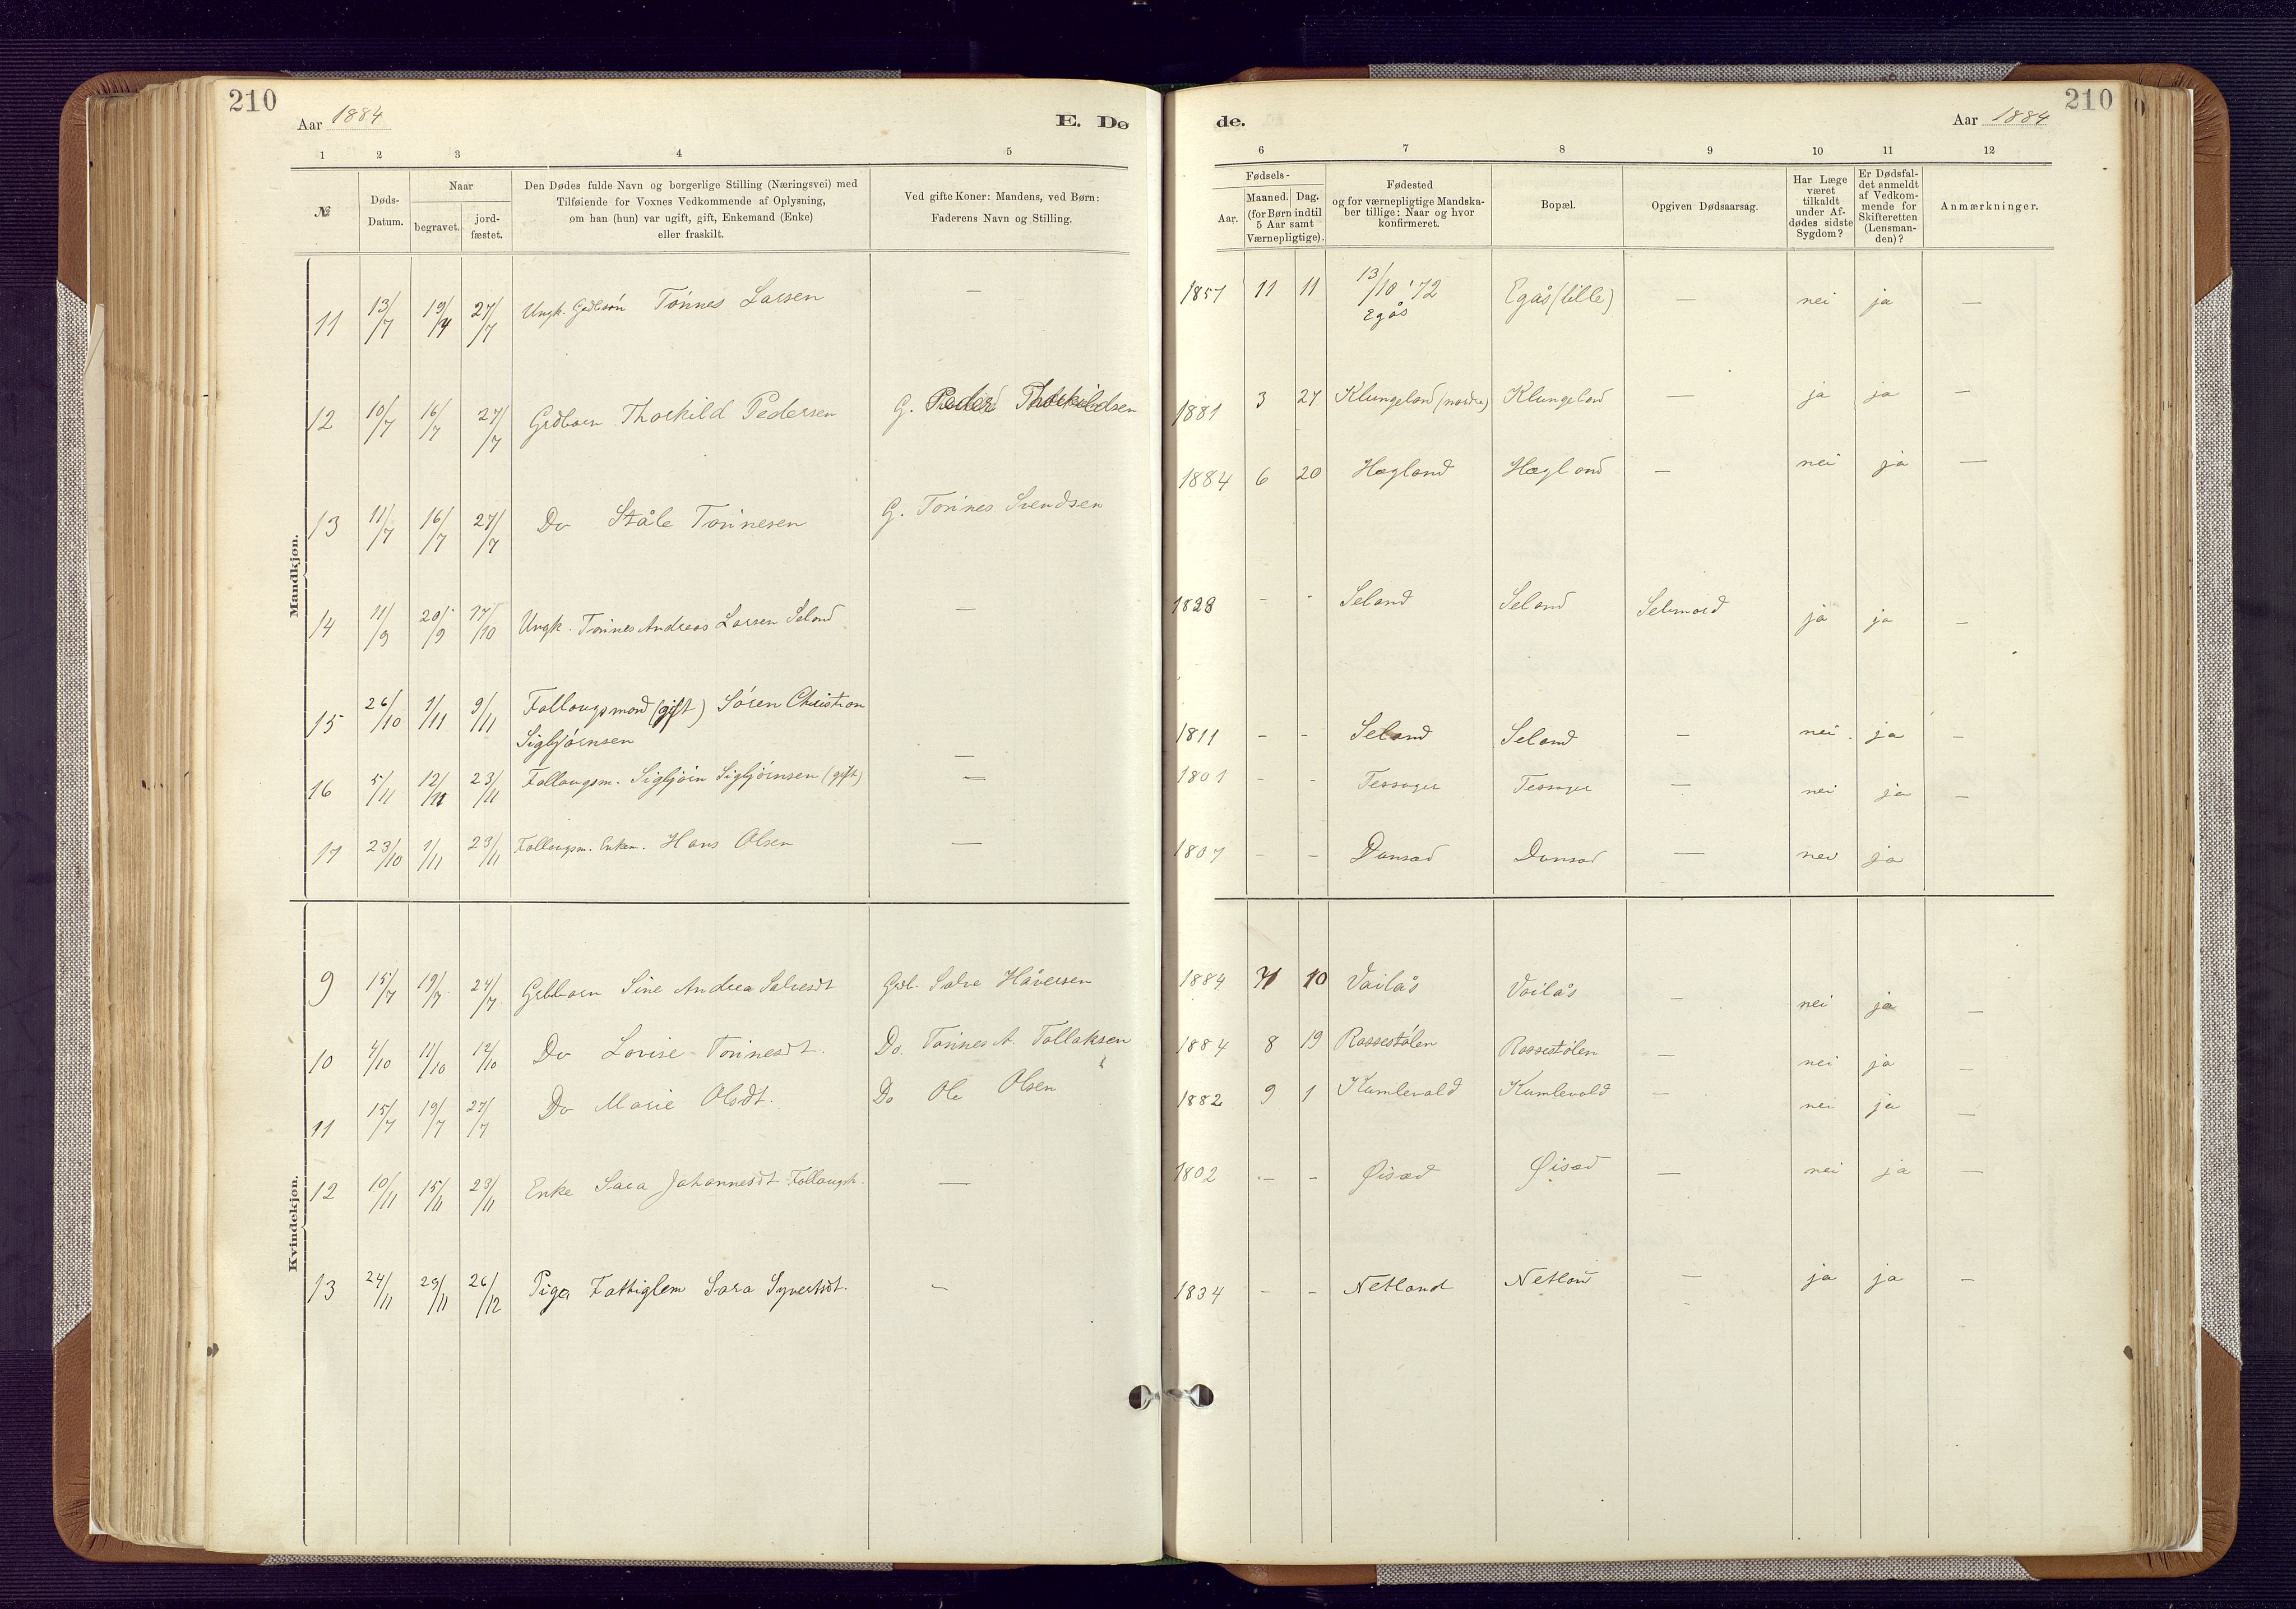 210
Aar 1884
E. Dø
1 2 3 4 5
№
Døds-
Datum.
Naar
begravet.
jord-
fæstet.
Den Dødes fulde Navn og borgerlige Stilling (Næringsvei) med
Tilføiende for Voxnes Vedkommende af Oplysning,
om han (hun) var ugift, gift, Enkemand (Enke)
eller fraskilt.
Ved gifte Koner: Mandens, ved Børn:
Faderens Navn og Stilling.
Mandkjøn.
11 13/7 19/7 27/7 Ungk. Gdbsøn Tönnes Larsen —
12 10/7 16/7 27/7 Grdbarn Thorkild Pedersen G. Peder Thorkildsen
13 11/7 16/7 27/7 Do Ståle Tönnesen G. Tönnes Svendsen
14 11/9 20/9 17/10 Ungk. Tönnes Andreas Larsen Seland —
15 26/10 1/11 9/11 Follaugsmand (gift) Sören Christian
Sigbjörnsen —
16 5/11 12/11 23/11 Follaugsm. Sigbjörn Sigbjörnsen (gift) —
17 23/10 1/11 23/11 Follaugsm. Enkem. Hans Olsen —
Kvindekjøn.
9 15/7 19/7 24/7 Gdbbarn Sine Andrea Salvesdt Gdb. Salve Håversen
10 4/10 11/10 12/10 Do Lovise Tönnesdt. Do. Tönnes A. Tollaksen
11 15/7 19/7 27/7 Do Marie Olsdt. Do Ole Olsen
12 10/11 15/11 23/11 Enke Sara Johannesdt Follaugsk. —
13 24/11 29/11 26/12 Piga Fattiglem Sara Syvertsdt. —
210
de.
Aar 1884
6 7 8 9 10 11 12
Fødsels-
Aar.
Maaned. Dag.
(for Børn indtil
5 Aar samt
Værnepligtige).
Fødested
og for værnepligtige Mandska-
ber tillige: Naar og hvor
konfirmeret.
Bopæl.
Opgiven Dødsaarsag.
Har Læge
været
tilkaldt
under Af-
dødes sidste
Sygdom?
Er Dødsfal-
det anmeldt
af Vedkom-
mende for
Skifteretten
(Lensman-
den)?
Anmærkninger.
1857 11 11 13/10 '72 Egås (lille) — nei ja —
Egås
1881 3 27 Klungeland (nordre) Klungeland — ja ja —
1884 6 20 Hægland Hægland — nei ja —
1828 - - Seland Seland Selvmord ja ja —
1811 - - Seland Seland — nei. ja —
1801 - - Tessager Tessager — nei ja —
1807 - - Dunsæd Dunsæd — nei ja
1884 10 Vailås Vailås — nei ja —
1884 8 19 Rossestölen Rossestölen — nei ja —
1882 9 1 Kumlevold Kumlevold — nei ja —
1802 - - Øisæd Øisæd — nei ja —
1834 - - Netland Netland — ja ja —